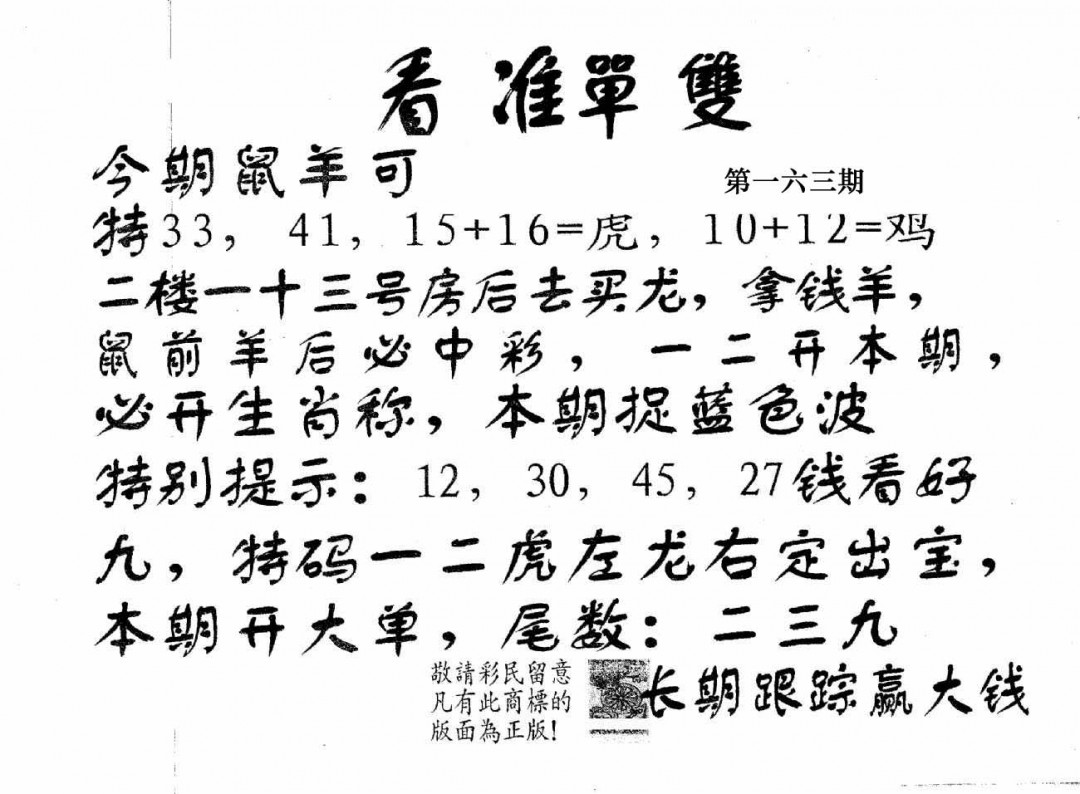 看准單雙
今期鼠羊可
第一六三期
特33，41，15+16=虎，10+12=鸡
二楼一十三号房后去买龙，拿钱羊，
鼠前羊后必中彩，一二开本期，
必开生肖称，本期捉蓝色波
特别提示：12，30，45，27钱看好
九，特码一二虎左龙右定出宝，
本期开大单，尾数：二三九
敬請彩民留意
凡有此商標的
版面為正版！
长期跟踪赢大钱